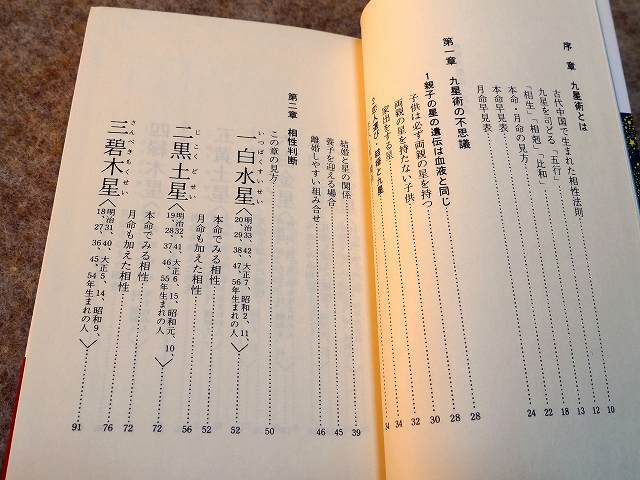 序章 九星術とは……10
古代中国で生まれた相性法則……12
九星を司どる「五行」……13
「相生」「相剋」「比和」……18
本命・月命の見方……22
本命早見表……22
月命早見表……24
第一章 九星術の不思議……28
1 親子の星の遺伝は血液と同じ……28
子供は必ず両親の星を持つ……30
両親の星を持たない子供……32
家出をする星……34
結婚と星の関係……39
養子を迎える場合……45
離婚しやすい組み合せ……46
第二章 相性判断
この章の見方……50
一白水星〈明治33、42、大正7、昭和2、11、20、29、38、47、56年生まれの人〉……52
いっぱくすいせい
本命でみる相性……52
月命も加えた相性……56
二黒土星〈明治32、41、大正6、15、昭和元、10、19、28、37、46、55年生まれの人〉……72
じこくどせい
本命でみる相性……72
月命も加えた相性……76
三碧木星〈明治31、40、大正5、14、昭和9、18、27、36、45、54年生まれの人〉……91
さんぺきもくせい